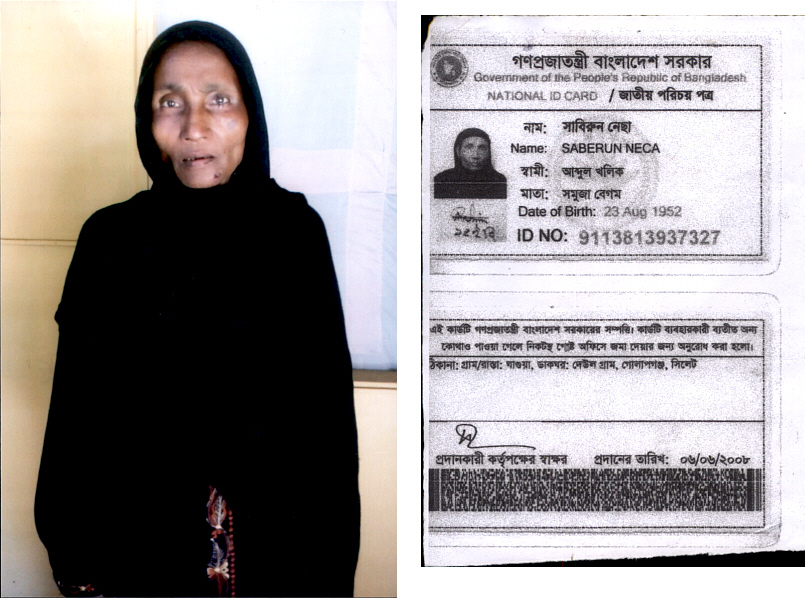 গণপ্রজাতন্ত্রী বাংলাদেশ সরকার
Government of the People's Republic of Bangladesh
NATIONAL ID CARD / জাতীয় পরিচয় পত্র
নাম: সাবিরুন নেছা
Name: SABERUN NECA
স্বামী: আব্দুল খলিক
মাতা: সমুজা বেগম
Date of Birth: 23 Aug 1952
ID NO: 9113813937327
এই কার্ডটি গণপ্রজাতন্ত্রী বাংলাদেশ সরকারের সম্পত্তি। কার্ডটি ব্যবহারকারী ব্যতীত অন্য
কোথাও পাওয়া গেলে নিকটস্থ পোষ্ট অফিসে জমা দেয়ার জন্য অনুরোধ করা হলো।
ঠিকানা: গ্রাম/রাস্তা: ঘাগুয়া, ডাকঘর: দেউল গ্রাম, গোলাপগঞ্জ, সিলেট
প্রদানকারী কর্তৃপক্ষের স্বাক্ষর প্রদানের তারিখ: ০৬/০৬/২০০৮